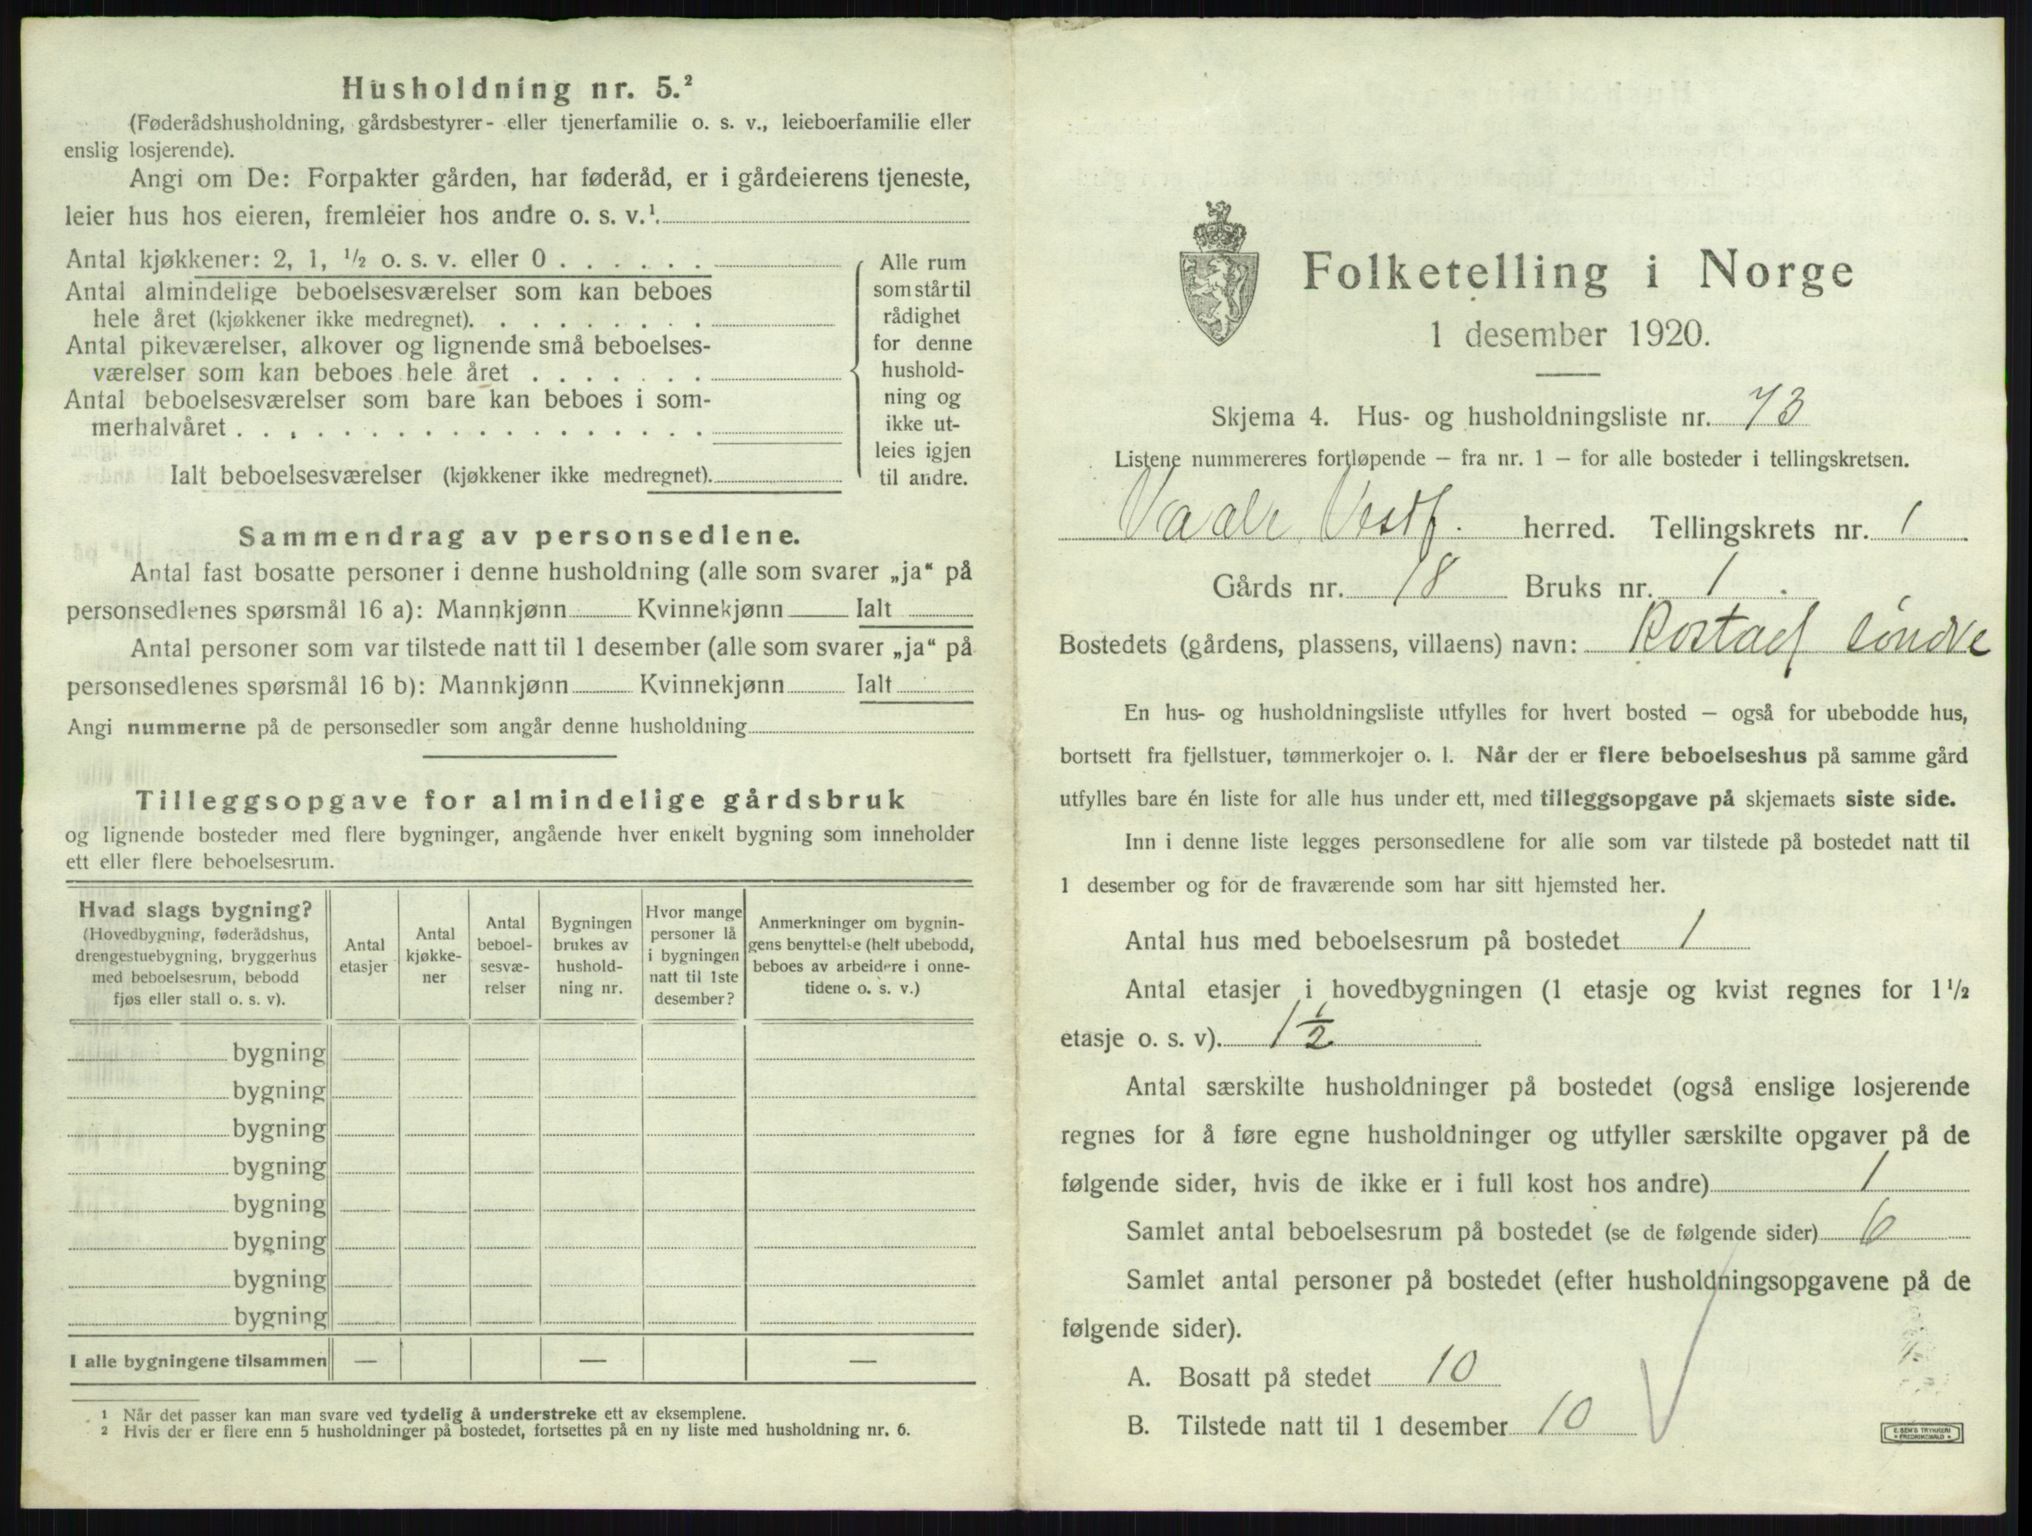 Husholdning nr. 5.²
(Føderådshusholdning, gårdsbestyrer- eller tjenerfamilie o. s. v., leieboerfamilie eller
enslig losjerende).
Angi om De: Forpakter gården, har føderåd, er i gårdeierens tjeneste,
leier hus hos eieren, fremleier hos andre o. s. v.¹.
Antal kjøkkener: 2, 1, ½ o. s. v. eller 0 . . . . . .
Antal almindelige beboelsesværelser som kan beboes
hele året (kjøkkener ikke medregnet). . . . . . . . .
Antal pikeværelser, alkover og lignende små beboelses-
værelser som kan beboes hele året . . . . . . .
Antal beboelsesværelser som bare kan beboes i som-
merhalvåret . . . . . . . . . . . . . . . . . .
Ialt beboelsesværelser (kjøkkener ikke medregnet).
Alle rum
som står til
rådighet
for denne
hushold-
ning og
ikke ut-
leies igjen
til andre.
Sammendrag av personsedlene.
Antal fast bosatte personer i denne husholdning (alle som svarer „ja“ på
personsedlenes spørsmål 16 a): Mannkjønn Kvinnekjønn Ialt
Antal personer som var tilstede natt til 1 desember (alle som svarer „ja“ på
personsedlenes spørsmål 16 b): Mannkjønn Kvinnekjønn Ialt
Angi nummerne på de personsedler som angår denne husholdning
Tilleggsopgave for almindelige gårdsbruk
og lignende bosteder med flere bygninger, angående hver enkelt bygning som inneholder
ett eller flere beboelsesrum.
Hvad slags bygning?
(Hovedbygning, føderådshus,
drengestuebygning, bryggerhus
med beboelsesrum, bebodd
fjøs eller stall o. s. v).
Antal
etasjer
Antal
kjøkke-
ner
Antal
beboel-
sesvæ-
relser
Bygningen
brukes av
hushold-
ning nr.
Hvor mange
personer lå
i bygningen
natt til 1ste
desember?
Anmerkninger om bygnin-
gens benyttelse (helt ubebodd,
beboes av arbeidere i onne-
tidene o. s. v.)
bygning
bygning
bygning
bygning
bygning
bygning
bygning
bygning
I alle bygningene tilsammen — — —
¹ Når det passer kan man svare ved tydelig å understreke ett av eksemplene.
² Hvis der er flere enn 5 husholdninger på bostedet, fortsettes på en ny liste med husholdning nr. 6.
Folketelling i Norge
1 desember 1920.
Skjema 4. Hus- og husholdningsliste nr. 73
Listene nummereres fortløpende – fra nr. 1 – for alle bosteder i tellingskretsen.
Vaale Vestf. herred. Tellingskrets nr. 1
Gårds nr. 18 Bruks nr. 1
Bostedets (gårdens, plassens, villaens) navn: Rostad söndre
En hus- og husholdningsliste utfylles for hvert bosted – også for ubebodde hus,
bortsett fra fjellstuer, tømmerkojer o. l. Når der er flere beboelseshus på samme gård
utfylles bare én liste for alle hus under ett, med tilleggsopgave på skjemaets siste side.
Inn i denne liste legges personsedlene for alle som var tilstede på bostedet natt til
1 desember og for de fraværende som har sitt hjemsted her.
Antal hus med beboelsesrum på bostedet 1
Antal etasjer i hovedbygningen (1 etasje og kvist regnes for 1½
etasje o. s. v). 1½
Antal særskilte husholdninger på bostedet (også enslige losjerende
regnes for å føre egne husholdninger og utfyller særskilte opgaver på de
følgende sider, hvis de ikke er i full kost hos andre) 1
Samlet antal beboelsesrum på bostedet (se de følgende sider) 6
Samlet antal personer på bostedet (efter husholdningsopgavene på de
følgende sider).
A. Bosatt på stedet 10
B. Tilstede natt til 1 desember 10